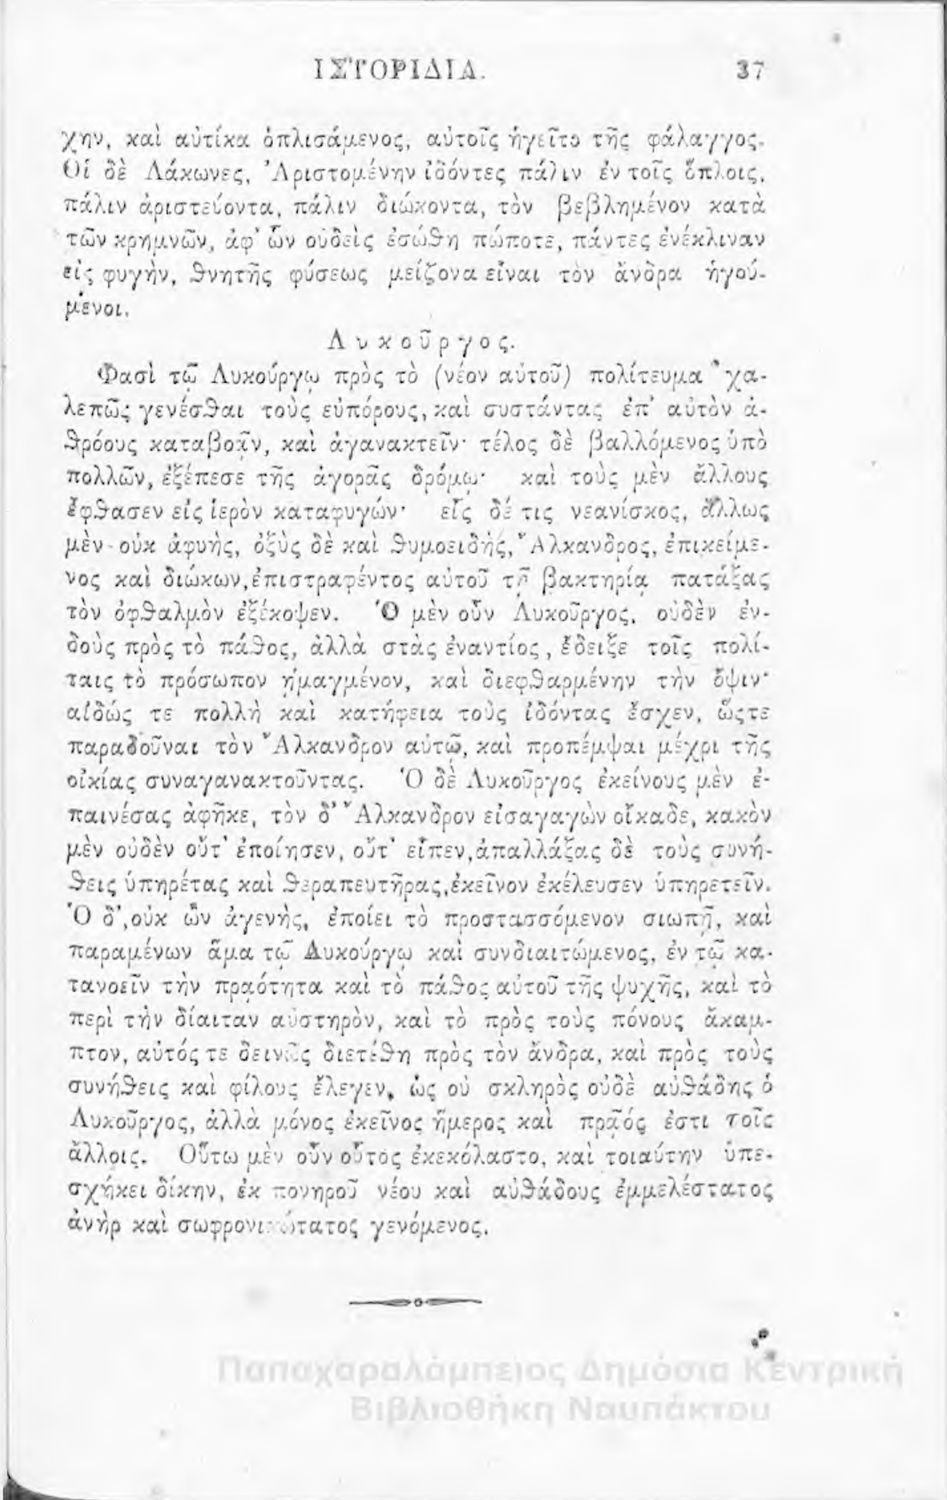 ΙΣΤΟΡΙΔΙΑ. 37
χην, καὶ αὐτίκα ὁπλισάμενος, αὐτοῖς ἡγεῖτο τῆς φάλαγγος.
Οἱ δὲ Λάκωνες, Ἀριστομένην ἰδόντες πάλιν ἐν τοῖς ὅπλοις,
πάλιν ἀριστεύοντα, πάλιν διώκοντα, τὸν βεβλημένον κατὰ
τῶν κρημνῶν, ἀφ᾽ ὧν οὐδεὶς ἐσώθη πώποτε, πάντες ἐνέκλιναν
εἰς φυγὴν, θνητῆς φύσεως μείζονα εἶναι τὸν ἄνδρα ἡγού-
μενοι.
Λυκοῦργος.
Φασὶ τῷ Λυκούργῳ πρὸς τὸ (νέον αὐτοῦ) πολίτευμα * χα-
λεπῶς γενέσθαι τοὺς εὐπόρους, καὶ συστάντας ἐπ᾽ αὐτὸν ἀ-
θρόους καταβοᾶν, καὶ ἀγανακτεῖν· τέλος δὲ βαλλόμενος ὑπὸ
πολλῶν, ἐξέπεσε τῆς ἀγορᾶς δρόμῳ· καὶ τοὺς μὲν ἄλλους
ἔφθασεν εἰς ἱερὸν καταφυγών· εἷς δέ τις νεανίσκος, ἄλλως
μὲν οὐκ ἀφυὴς, ὀξὺς δὲ καὶ θυμοειδὴς, Ἄλκανδρος, ἐπικείμε-
νος καὶ διώκων, ἐπιστραφέντος αὐτοῦ τῇ βακτηρίᾳ πατάξας
τὸν ὀφθαλμὸν ἐξέκοψεν. Ὁ μὲν οὖν Λυκοῦργος, οὐδὲν ἐν-
δοὺς πρὸς τὸ πάθος, ἀλλὰ στὰς ἐναντίος, ἔδειξε τοῖς πολί-
ταις τὸ πρόσωπον ᾑμαγμένον, καὶ διεφθαρμένην τὴν ὄψιν·
αἰδώς τε πολλὴ καὶ κατήφεια τοὺς ἰδόντας ἔσχεν, ὥςτε
παραδοῦναι τὸν Ἄλκανδρον αὐτῷ, καὶ προπέμψαι μέχρι τῆς
οἰκίας συναγανακτοῦντας. Ὁ δὲ Λυκοῦργος ἐκείνους μὲν ἐ-
παινέσας ἀφῆκε, τὸν δ᾽ Ἄλκανδρον εἰσαγαγὼν οἴκαδε, κακὸν
μὲν οὐδὲν οὔτ᾽ ἐποίησεν, οὔτ᾽ εἶπεν, ἀπαλλάξας δὲ τοὺς συνή-
θεις ὑπηρέτας καὶ θεραπευτῆρας, ἐκεῖνον ἐκέλευσεν ὑπηρετεῖν.
Ὁ δ᾽, οὐκ ὢν ἀγενὴς, ἐποίει τὸ προστασσόμενον σιωπῇ, καὶ
παραμένων ἅμα τῷ Λυκούργῳ καὶ συνδιαιτώμενος, ἐν τῷ κα-
τανοεῖν τὴν πραότητα καὶ τὸ πάθος αὐτοῦ τῆς ψυχῆς, καὶ τὸ
περὶ τὴν δίαιταν αὐστηρὸν, καὶ τὸ πρὸς τοὺς πόνους ἄκαμ-
πτον, αὐτός τε δεινῶς διετέθη πρὸς τὸν ἄνδρα, καὶ πρὸς τοὺς
συνήθεις καὶ φίλους ἔλεγεν, ὡς οὐ σκληρὸς οὐδὲ αὐθάδης ὁ
Λυκοῦργος, ἀλλὰ μόνος ἐκεῖνος ἥμερος καὶ πρᾶός ἐστι τοῖς
ἄλλοις. Οὕτω μὲν οὖν οὗτος ἐκεκόλαστο, καὶ τοιαύτην ὑπε-
σχήκει δίκην, ἐκ πονηροῦ νέου καὶ αὐθάδους ἐμμελέστατος
ἀνὴρ καὶ σωφρονικώτατος γενόμενος.
Παπαχαραλάμπειος Δημόσια Κεντρική
Βιβλιοθήκη Ναυπάκτου